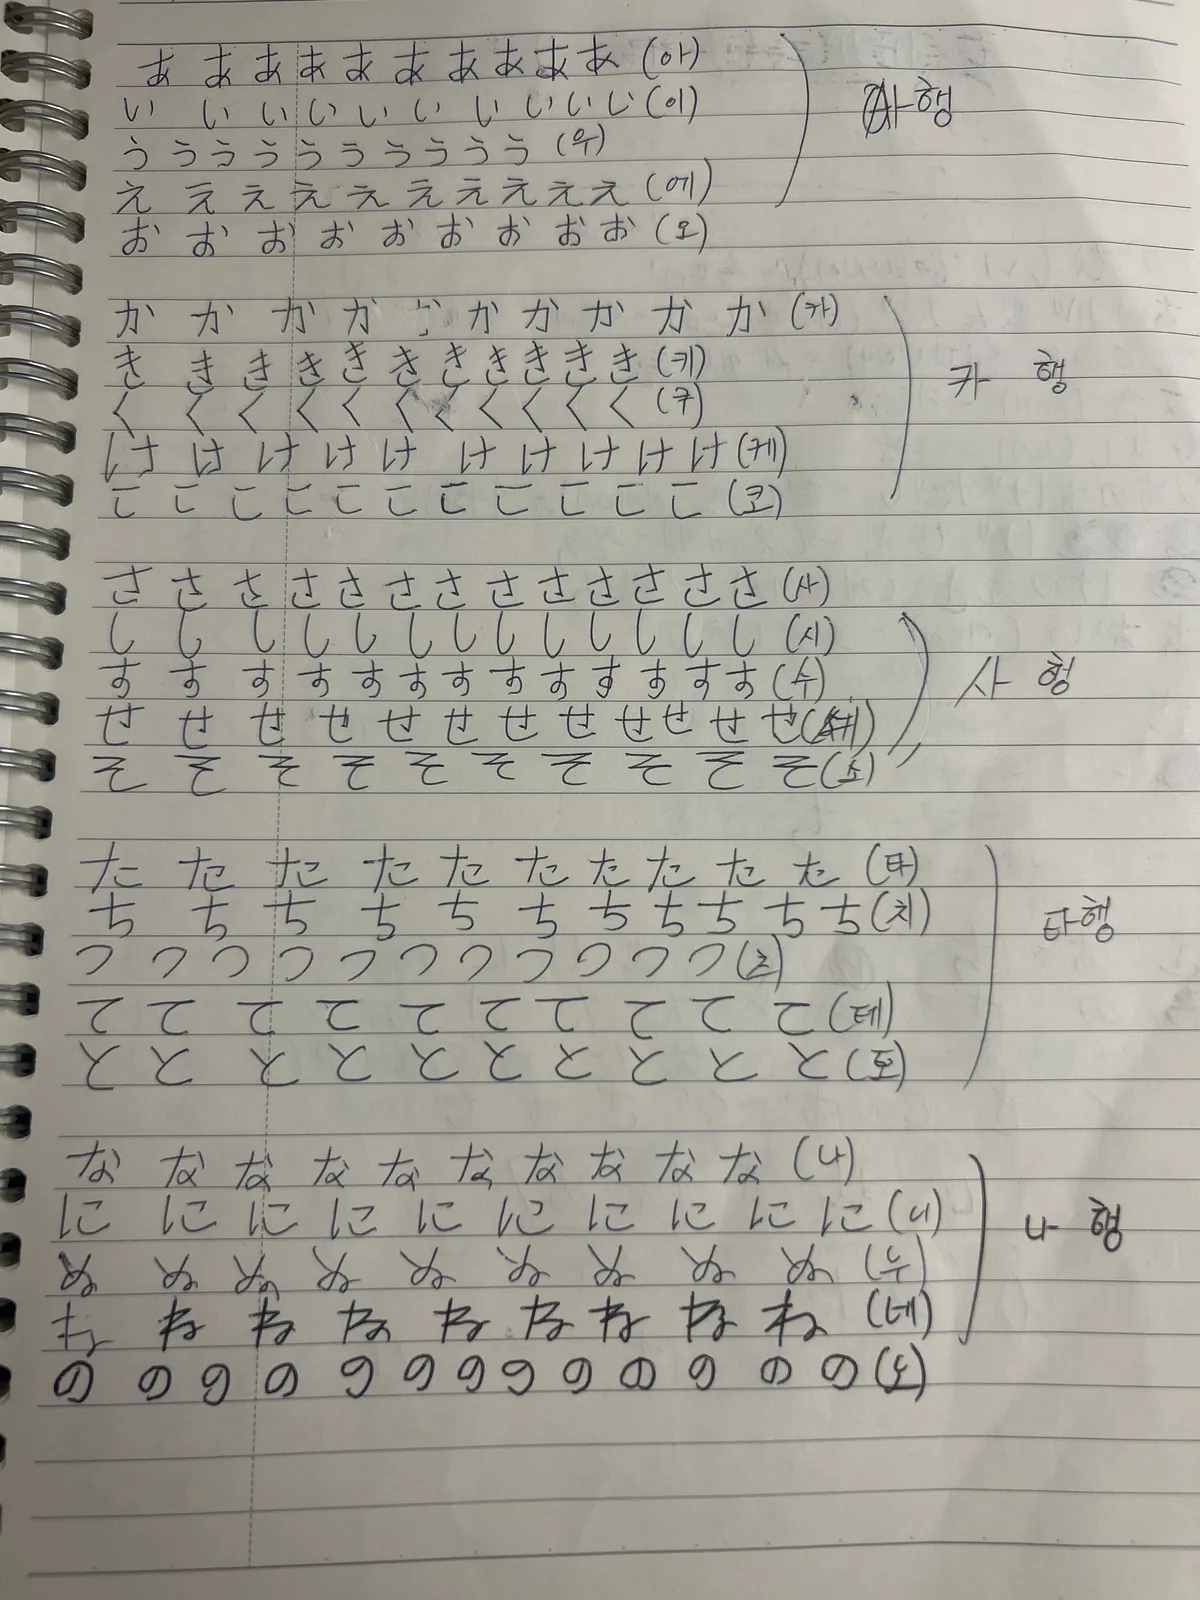 ああああああああああ (아)
いいいいいいいいいい (이)
うううううううううう (우)
ええええええええええ (에)
おおおおおおおおお (오)
아행
かかかかかかかかかか (카)
ききききききききききき (키)
くくくくくくくくくくく (쿠)
けけけけけけけけけけ (케)
こここここここここここ (코)
카 행
ささささささささささささ (사)
しししししししししししし (시)
すすすすすすすすすすすすす (수)
せせせせせせせせせせせ (세)
そそそそそそそそそ (소)
사 행
たたたたたたたたたた (타)
ちちちちちちちちちちち (치)
つつつつつつつつつつつ (츠)
てててててててててて (테)
とととととととととと (토)
타행
なななななななななな (나)
にににににににににに (니)
ぬぬぬぬぬぬぬぬぬ (누)
ねねねねねねねねね (네)
ののののののののののののの (노)
나 행